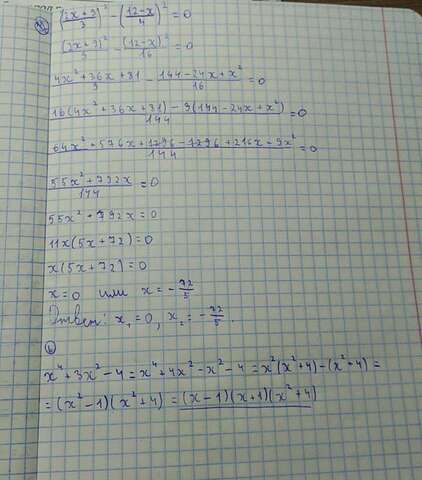 (2x+9/3)² - (12-x/4)² = 0
(2x+9)²/9 - (12-x)²/16 = 0
4x²+36x+81/9 - 144-24x+x²/16 = 0
16(4x²+36x+81) - 9(144-24x+x²)/144 = 0
64x²+576x+1296-1296+216x-9x²/144 = 0
55x²+792x/144 = 0
55x²+792x=0
11x(5x+72)=0
x(5x+72)=0
x=0 или x = -72/5
Ответ: x₁=0, x₂ = -72/5.
x⁴+3x²-4=x⁴+4x²-x²-4=x²(x²+4)-(x²+4)=
=(x²-1)(x²+4)=(x-1)(x+1)(x²+4)